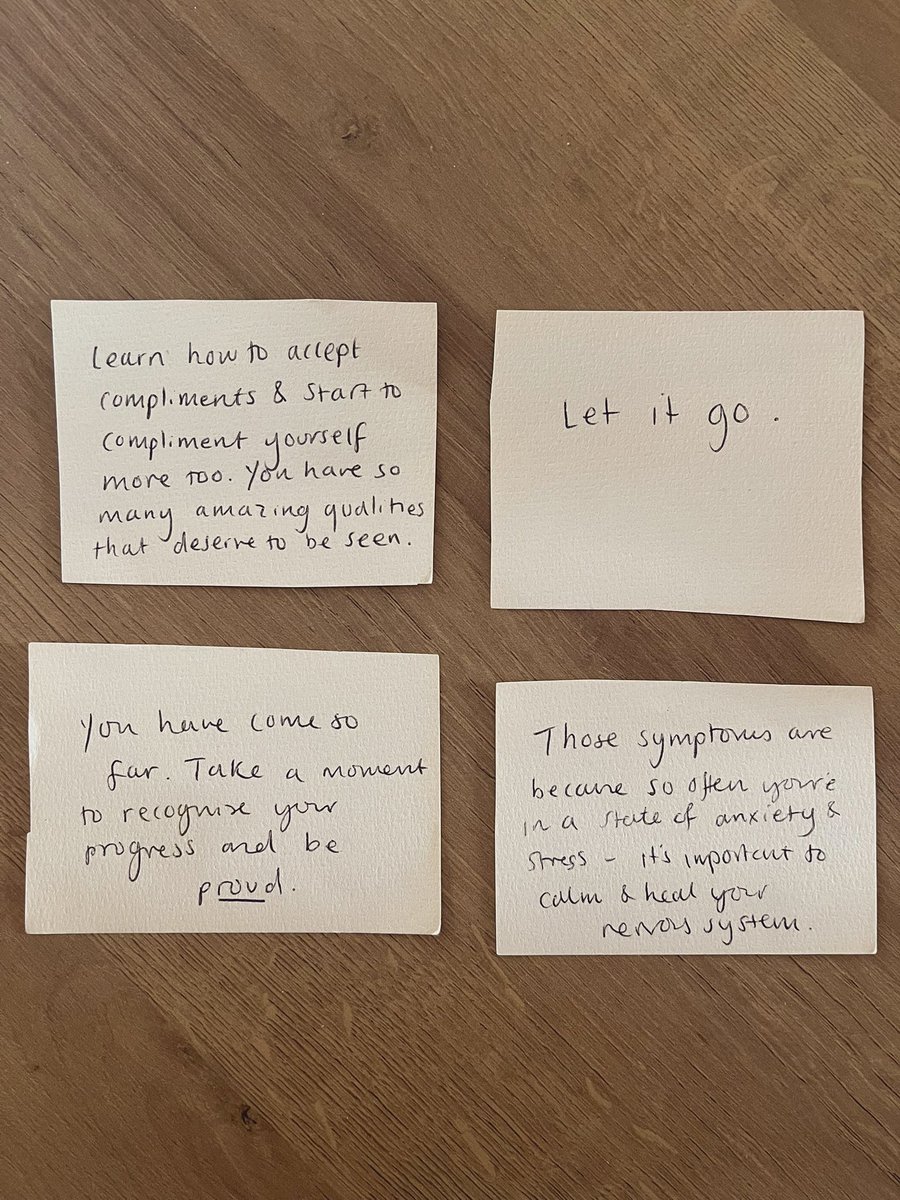 Learn how to accept
compliments & start to
compliment yourself
more too. You have so
many amazing qualities
that deserve to be seen.
Let it go.
You have come so
far. Take a moment
to recognise your
progress and be
proud.
Those symptoms are
because so often you're
in a state of anxiety &
stress - it's important to
calm & heal your
nervous system.